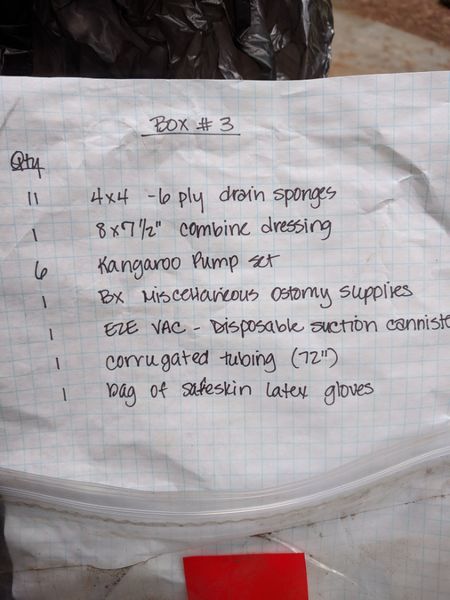 Box # 3
Qty
11 4x4 - 6 ply drain sponges
1 8x7 1/2" combine dressing
6 Kangaroo Pump set
1 Bx Miscellaneous Ostomy supplies
1 EZE VAC - Disposable suction canniste
1 corrugated tubing (72")
1 bag of safeskin latex gloves